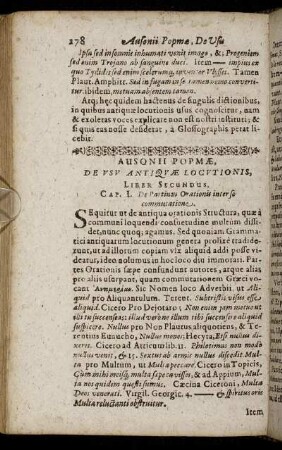 278 Ausonii Popmæ, De Usu
Ipsa sed in somnis inhumati venit imago, &; Progeniem
sed enim Trojano ab sanguine duci. Item — impius ex
quo Tydides sed enim scelerumq; Ulyssei. Tamen
Plaut. Amphitr. Sed in fugam in se tamen converti-
tur. ibidem, metuam absentem tamen.
Atq; hęc quidem hactenus de singulis dictionibus,
in quibus antiquæ locutionis usus cognoscitur, nam
& exoletas voces explicare non est nostri instituti; &
si quis eas nosse desiderat, à Glossographis petat li-
cebit.
AUSONII POPMÆ,
DE VSV ANTIQVÆ LOCVTIONIS,
LIBER SECUNDUS.
CAP. I. De Partium Orationis inter se
commutatione.
SEquitur ut de antiqua orationis structura, quæ à
communi loquendi consuetudine multum diffi-
det, nunc quoq; agamus. Sed quoniam Gramma-
tici antiquarum locutionum genera prolixè tradide-
runt, ut ad illorum copiam vix aliquid addi posse vi-
deatur, idem omnibus in hoc loco diu immorati. Par-
tes Orationis sæpe confundunt autores, atque aliis
pro aliis utuntur, quam commutationem Græci vo-
cant Sic Nomen loco Adverbii. ut Ali-
quid pro Aliquantulum. Terent. Subtristis visus est
aliquid. Cicero Pro Dejotaro: Non enim jam metuo ne
illi tu succenseas: illud vereor ne illum tibi succensere aliquid
suspicere. Nullus pro Non Plautus aliquoties, & Te-
rentius Eunucho, Nullus moneo: Hecyra, Etsi nullus di-
xeris. Cicero ad Atticum lib. 11. Philotimus non modo
nullus venit, & 15. Sextus ab armis nullus discedit Mul-
ta pro Multum, ut Multa peccare. Cicero in Topicis,
Cum mihi meisq; multa sæpe cavisses, & ad Appium, Mul-
ta nos quidem questi sumus. Cæcina Ciceroni, Multa
Deos venerati. Virgil. Georgic. 4. — & spiritus oris
Multa reluctanti obstruitur.
Item